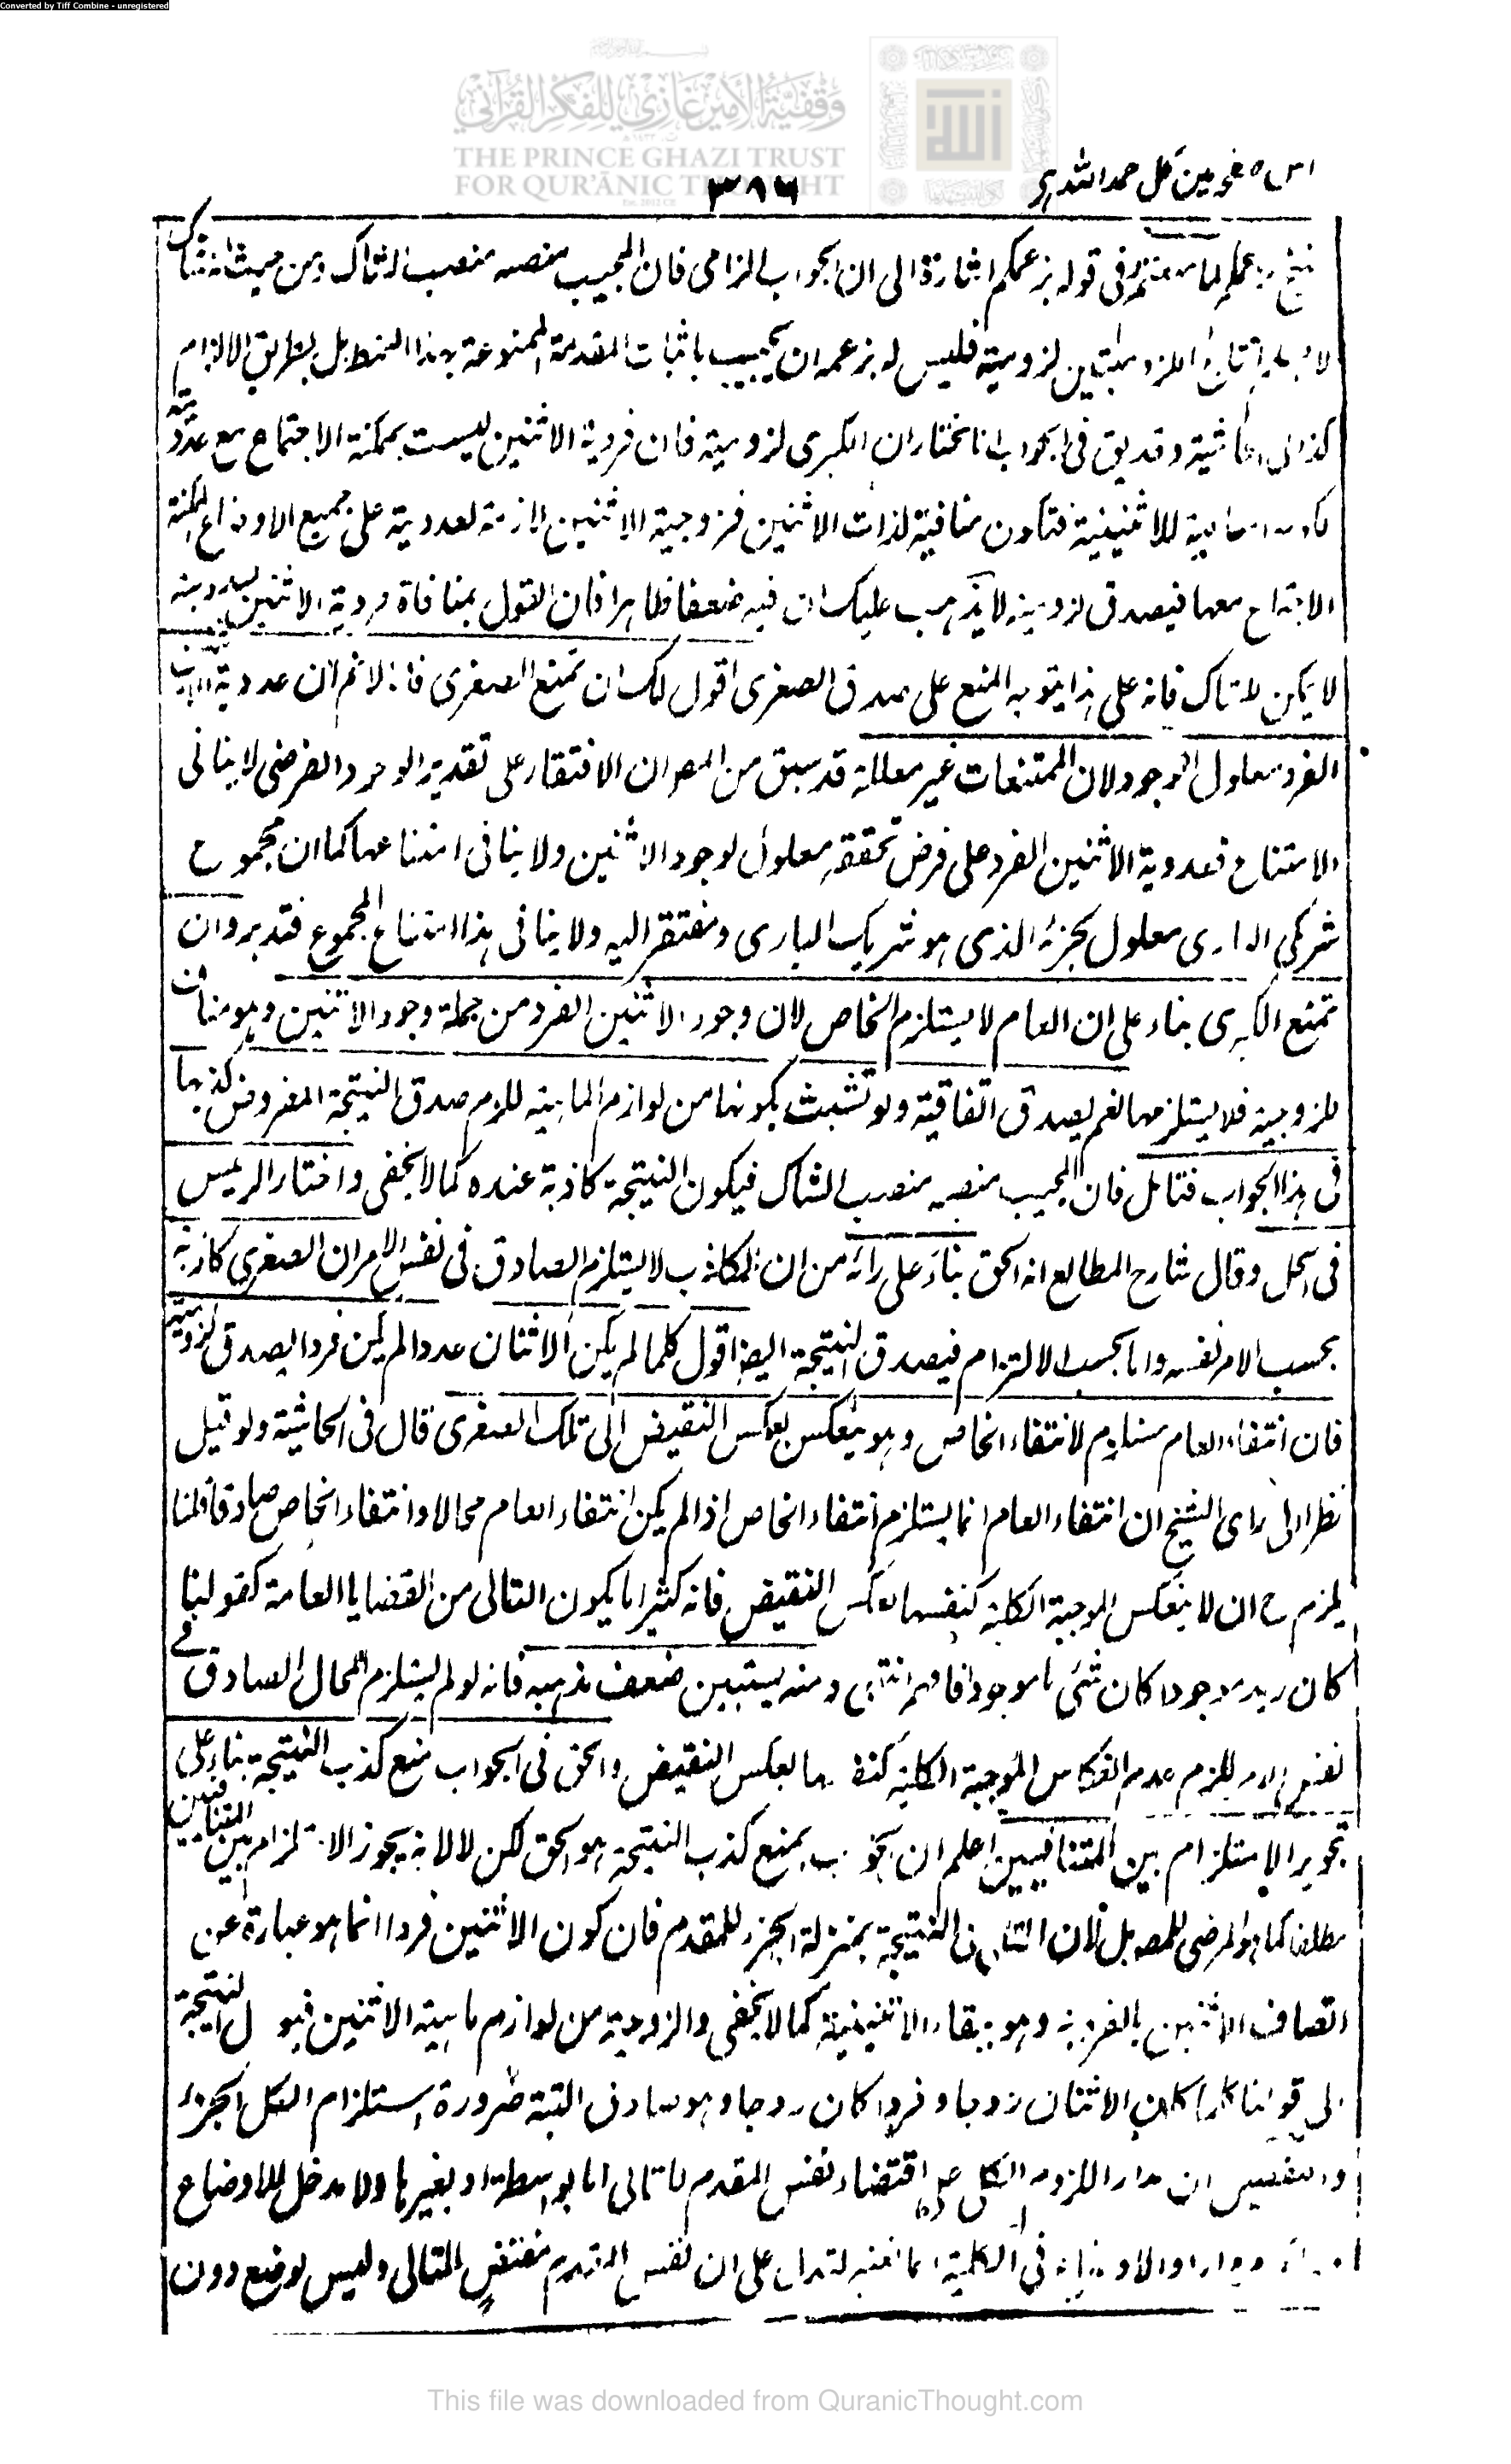 Converted by Tiff Combine - unregistered
وقفية الأمير غازي للفكر القرآني
THE PRINCE GHAZI TRUST
FOR QUR'ĀNIC THOUGHT
٣٨٦
اس صفحہ مین کل حمد اللہ ہی
بزعمكم فى قوله بزعمكم اشارة الى ان الجواب الزامى فان المجيب منصبه منصب الشاك ومن حيث انه شاك
لزومية فليس له بزعمه ان يجيب باثبات المقدمة الممنوعة بهذا النمط بل بطريق الالزام
كذا فى الحاشية وقد يق فى الجواب انا نختار ان الكبرى لزومية فان فردية الاثنين ليست بممكنة الاجتماع مع عدديته
للاثنينية فتكون منافية لذات الاثنين فزوجية الاثنين لازمة لعددية على جميع الاوضاع الممكنة
الاجتماع معها فيصدق لزومية لا يذهب عليك ان فيه ضعفا ظاهرا فان القول بمنافاة فردية الاثنين
لا يمكن للشاك فانه على هذا يتوجه المنع على صدق الصغرى اقول لك ان تمنع الصغرى فانا لا نم ان عددية الاثنين
الفرد معلول الوجود لان الممتنعات غير معللة قد سبق من المص ان الافتقار على تقدير الوجود الفرضى لا ينافى
الامتناع فعددية الاثنين الفرد على فرض تحققه معلول لوجود الاثنين ولا ينافى امتناعها كما ان مجموع
شريكى البارى معلول بجزئه الذى هو شريك البارى ومفتقر اليه ولا ينافى هذا امتناع المجموع فتدبر وان
تمنع الكبرى بناء على ان العام لا يستلزم الخاص لان وجود الاثنين الفرد من جملة وجود الاثنين وهو مناف
للزوجية فلا يستلزمها نعم يصدق اتفاقية ولو تشبث بكونها من لوازم الماهية للزم صدق النتيجة المفروض كذبها
فى هذا الجواب فتامل فان المجيب منصبه منصب الشاك فيكون النتيجة كاذبة عنده كما لا يخفى واختار الرئيس
فى الحل وقال شارح المطالع انه الحق بناء على رائه من ان الكاذب لا يستلزم الصادق فى نفس الامر ان الصغرى كاذبة
بحسب الامر نفسه واما بحسب الالتزام فيصدق النتيجة ايضا اقول كلما لم يكن الاثنان عددا لم يكن فردا يصدق لزومية
فان انتفاء العام مستلزم لانتفاء الخاص وهو ينعكس بعكس النقيض الى تلك الصغرى قال فى الحاشية ولو قيل
نظرا الى راى الشيخ ان انتفاء العام انما يستلزم انتفاء الخاص اذا لم يكن انتفاء العام محالا وانتفاء الخاص صادقا قلنا
يلزم ح ان لا ينعكس الموجبة الكلية كنفسها بعكس النقيض فانه كثيرا ما يكون التالى من القضايا العامة كقولنا
كان زيد موجودا كان شئ ما موجودا فافهم انتهى ومنه يستبين ضعف مذهبه فانه لو لم يستلزم المحال الصادق فى
نفس الامر للزم عدم انعكاس الموجبة الكلية كنفسها بعكس النقيض والحق فى الجواب منع كذب النتيجة بناء على
تجويز الاستلزام بين المتنافيين اعلم ان الجواب بمنع كذب النتيجة هو الحق لكن لا لانه يجوز الاستلزام بين المتنافيين
مطلقا كما هو المرضى للمص بل لان التالى فى النتيجة بمنزلة الجزء للمقدم فان كون الاثنين فردا انما هو عبارة عن
اتصاف الاثنين بالفردية وهو ببقاء الاثنينية كما لا يخفى والزوجية من لوازم ماهية الاثنين النتيجة
الى قولنا كلما كان الاثنان زوجا وفردا كان زوجا وهو صادق البتة ضرورة استلزام الكل الجزء
ان مدار اللزوم الكلى على اقتضاء نفس المقدم للتالى اما بواسطة او بغيرها ولا مدخل للاوضاع
فى الكلية انما لتدل على ان نفس المقدم مقتض للتالى وليس لوضع دون
This file was downloaded from QuranicThought.com